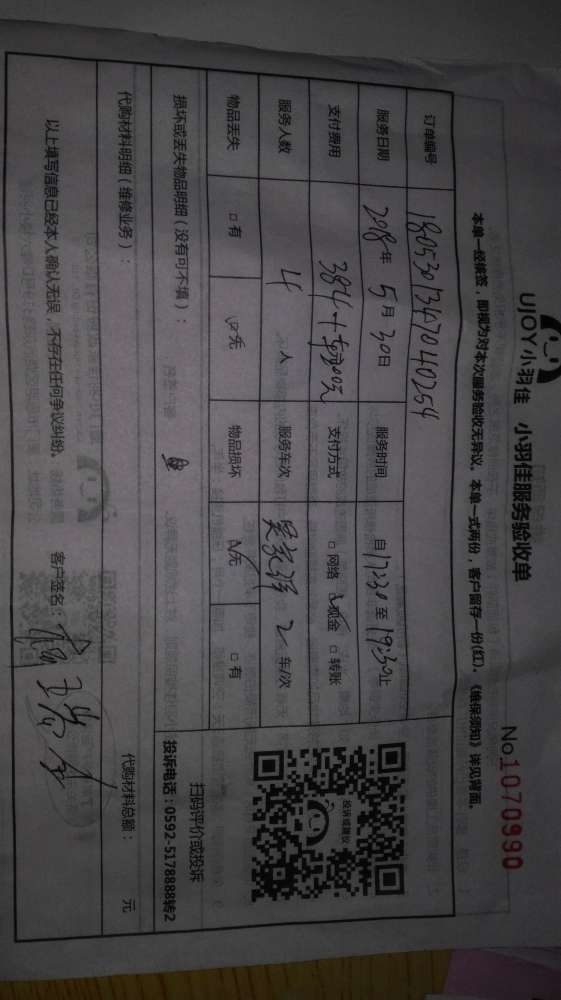 UJOY小羽佳 小羽佳服务验收单
No1070990
本单一经核签，即视为对本次服务验收无异议。本单一式两份，客户留存一份(红)，《维保须知》详见背面。
订单编号 1805301347040254
服务日期 2018年 5月 30日 服务时间 自17:30至19:30止
支付费用 支付方式 □网络 现金 □转账
服务人数 4 人 服务车次 2 车/次
物品丢失 □有 无 物品损坏 无 □有
损坏或丢失物品明细（没有可不填）：
投诉或建议
扫码评价或投诉
投诉电话：0592-5178888转2
代购材料明细（维修业务）： 代购材料总额： 元
以上填写信息已经本人确认无误，不存在任何争议纠纷。 客户签名：